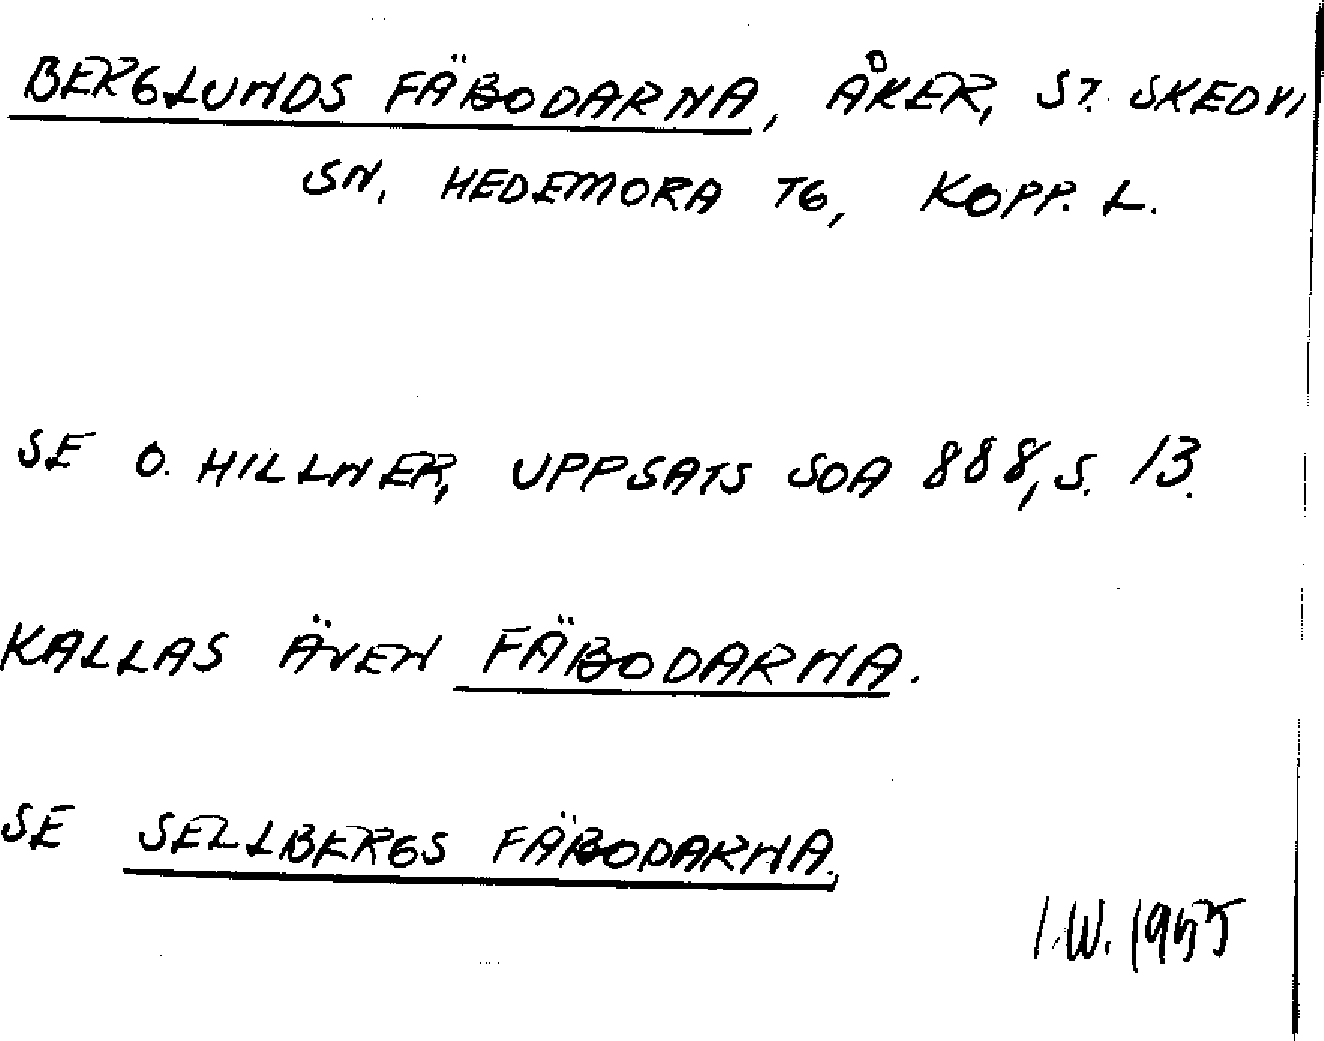 BERGLUNDS FÄBODARNA, ÅKER, ST. SKEDVI
SN. HEDEMORA TG, KOPP. L.
SE O. HILLNER, UPPSATS SOA 888, S. 13.
KALLAS ÄVEN FÄBODARNA.
SE SELLBERGS FÄBODARNA.
I.W. 1955